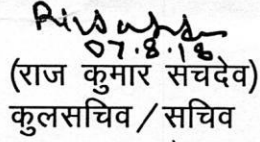 07.8.18
(राज कुमार सचदेव)
कुलसचिव/सचिव